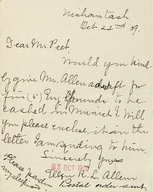 Nishan tash
Oct. 22nd 09.
Dear Mr. Peet
Would you kind-
ly give Mr. Allen draft for
five (5) Pounds to be
cashed in Munich? Will
you please enclose it in the
letter I am sending to him.
Sincerely yours
Alice R. Allen
Please pardon
Postal order sent